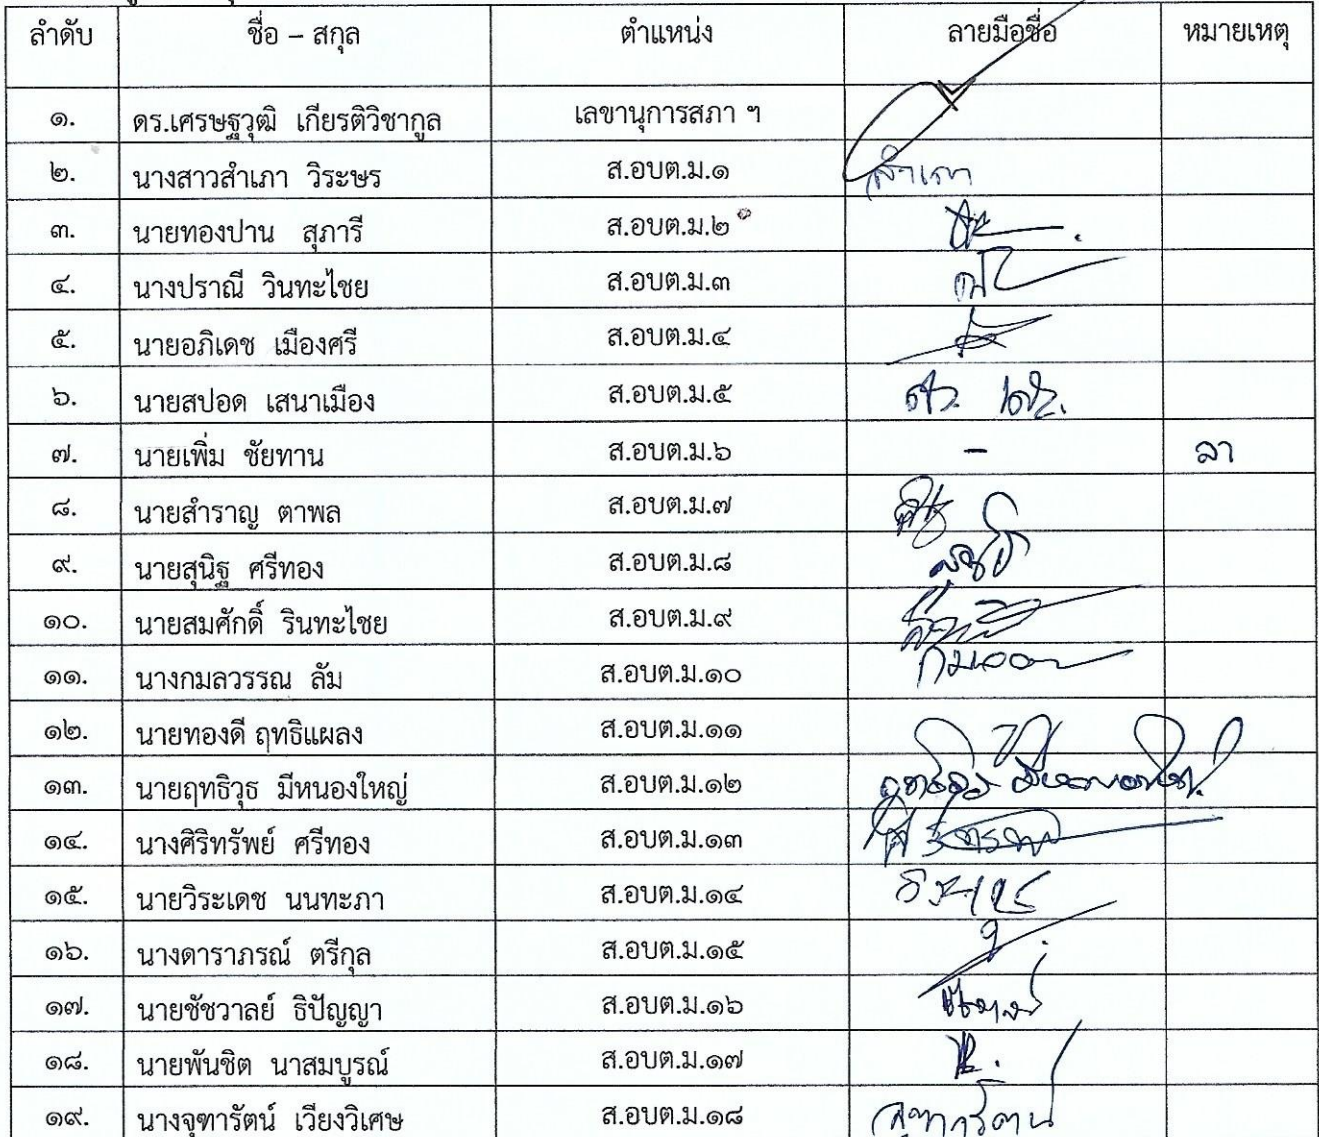 ลำดับ ชื่อ – สกุล ตำแหน่ง ลายมือชื่อ หมายเหตุ
๑. ดร.เศรษฐวุฒิ เกียรติวิชากูล เลขานุการสภา ฯ
๒. นางสาวสำเภา วิระษร ส.อบต.ม.๑ สำเภา
๓. นายทองปาน สุภารี ส.อบต.ม.๒
๔. นางปราณี วินทะไชย ส.อบต.ม.๓
๕. นายอภิเดช เมืองศรี ส.อบต.ม.๔
๖. นายสปอด เสนาเมือง ส.อบต.ม.๕
๗. นายเพิ่ม ชัยทาน ส.อบต.ม.๖ – ลา
๘. นายสำราญ ตาพล ส.อบต.ม.๗
๙. นายสุนิฐ ศรีทอง ส.อบต.ม.๘
๑๐. นายสมศักดิ์ รินทะไชย ส.อบต.ม.๙
๑๑. นางกมลวรรณ ลัม ส.อบต.ม.๑๐
๑๒. นายทองดี ฤทธิแผลง ส.อบต.ม.๑๑
๑๓. นายฤทธิวุธ มีหนองใหญ่ ส.อบต.ม.๑๒
๑๔. นางศิริทรัพย์ ศรีทอง ส.อบต.ม.๑๓
๑๕. นายวิระเดช นนทะภา ส.อบต.ม.๑๔
๑๖. นางดาราภรณ์ ตรีกุล ส.อบต.ม.๑๕
๑๗. นายชัชวาลย์ ธิปัญญา ส.อบต.ม.๑๖
๑๘. นายพันชิต นาสมบูรณ์ ส.อบต.ม.๑๗
๑๙. นางจุฑารัตน์ เวียงวิเศษ ส.อบต.ม.๑๘ จุฑารัตน์